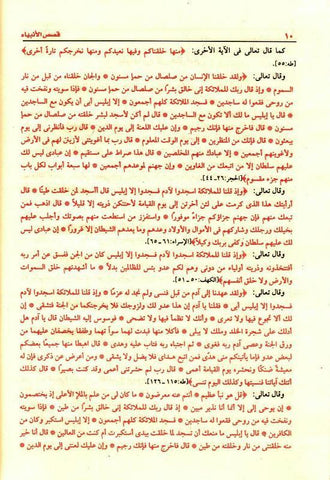 ١٠ قصص الأنبياء
كما قال تعالى في الآية الأخرى: ﴿منها خلقناكم وفيها نعيدكم ومنها نخرجكم تارة أخرى﴾
[طه: ٥٥].
وقال تعالى: ﴿ولقد خلقنا الإنسان من صلصال من حمإ مسنون * والجان خلقناه من قبل من نار
السموم * وإذ قال ربك للملائكة إني خالق بشرًا من صلصال من حمإ مسنون * فإذا سويته ونفخت فيه
من روحي فقعوا له ساجدين * فسجد الملائكة كلهم أجمعون * إلا إبليس أبى أن يكون مع الساجدين
* قال يا إبليس ما لك ألا تكون مع الساجدين * قال لم أكن لأسجد لبشر خلقته من صلصال من حمإ
مسنون * قال فاخرج منها فإنك رجيم * وإن عليك اللعنة إلى يوم الدين * قال رب فأنظرني إلى يوم
يبعثون * قال فإنك من المنظرين * إلى يوم الوقت المعلوم * قال رب بما أغويتني لأزينن لهم في الأرض
ولأغوينهم أجمعين * إلا عبادك منهم المخلصين * قال هذا صراط علي مستقيم * إن عبادي ليس لك
عليهم سلطان إلا من اتبعك من الغاوين * وإن جهنم لموعدهم أجمعين * لها سبعة أبواب لكل باب
منهم جزء مقسوم﴾ [الحجر: ٢٦-٤٤].
وقال تعالى: ﴿وإذ قلنا للملائكة اسجدوا لآدم فسجدوا إلا إبليس قال أأسجد لمن خلقت طينًا * قال
أرأيتك هذا الذي كرمت علي لئن أخرتن إلى يوم القيامة لأحتنكن ذريته إلا قليلاً * قال اذهب فمن
تبعك منهم فإن جهنم جزاؤكم جزاءً موفورًا * واستفزز من استطعت منهم بصوتك وأجلب عليهم
بخيلك ورجلك وشاركهم في الأموال والأولاد وعدهم وما يعدهم الشيطان إلا غرورًا * إن عبادي ليس
لك عليهم سلطان وكفى بربك وكيلاً﴾ [الإسراء: ٦١-٦٥].
وقال تعالى: ﴿وإذ قلنا للملائكة اسجدوا لآدم فسجدوا إلا إبليس كان من الجن ففسق عن أمر ربه
أفتتخذونه وذريته أولياء من دوني وهم لكم عدو بئس للظالمين بدلاً * ما أشهدتهم خلق السموات
والأرض ولا خلق أنفسهم﴾ [الكهف: ٥٠-٥١].
وقال تعالى: ﴿ولقد عهدنا إلى آدم من قبل فنسي ولم نجد له عزمًا * وإذ قلنا للملائكة اسجدوا لآدم
فسجدوا إلا إبليس أبى * فقلنا يا آدم إن هذا عدو لك ولزوجك فلا يخرجنكما من الجنة فتشقى * إن
لك ألا تجوع فيها ولا تعرى * وأنك لا تظمأ فيها ولا تضحى * فوسوس إليه الشيطان قال يا آدم هل
أدلك على شجرة الخلد وملك لا يبلى * فأكلا منها فبدت لهما سوآتهما وطفقا يخصفان عليهما من
ورق الجنة وعصى آدم ربه فغوى * ثم اجتباه ربه فتاب عليه وهدى * قال اهبطا منها جميعًا بعضكم
لبعض عدو فإما يأتينكم مني هدًى فمن اتبع هداي فلا يضل ولا يشقى * ومن أعرض عن ذكري فإن له
معيشة ضنكًا ونحشره يوم القيامة أعمى * قال رب لم حشرتني أعمى وقد كنت بصيرًا * قال كذلك
أتتك آياتنا فنسيتها وكذلك اليوم تنسى﴾ [طه: ١١٥-١٢٦].
وقال تعالى: ﴿قل هو نبأ عظيم * أنتم عنه معرضون * ما كان لي من علم بالملإ الأعلى إذ يختصمون
* إن يوحى إلي إلا أنما أنا نذير مبين * إذ قال ربك للملائكة إني خالق بشرًا من طين * فإذا سويته
ونفخت فيه من روحي فقعوا له ساجدين * فسجد الملائكة كلهم أجمعون * إلا إبليس استكبر وكان من
الكافرين * قال يا إبليس ما منعك أن تسجد لما خلقت بيدي أستكبرت أم كنت من العالين * قال أنا خير
منه خلقتني من نار وخلقته من طين * قال فاخرج منها فإنك رجيم * وإن عليك لعنتي إلى يوم الدين *